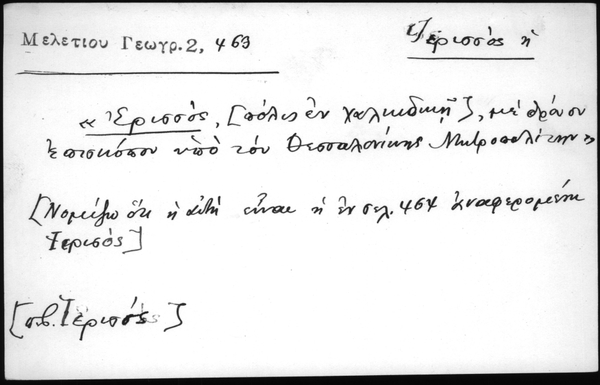 Μελετίου Γεωγρ. 2, 463
Ἰερισσὸς ἡ
« Ἐρισσὸς, [πόλις ἐν Χαλκιδικῇ], μὲ θρόνον
ἐπισκόπου ὑπὸ τὸν Θεσσαλονίκης Μητροπολίτην »
[Νομίζω ὅτι ἡ αὐτὴ εἶναι ἡ ἐν σελ. 464 ἀναφερομένη
Ἰερισὸς]
[πβ. Ἰερισός]